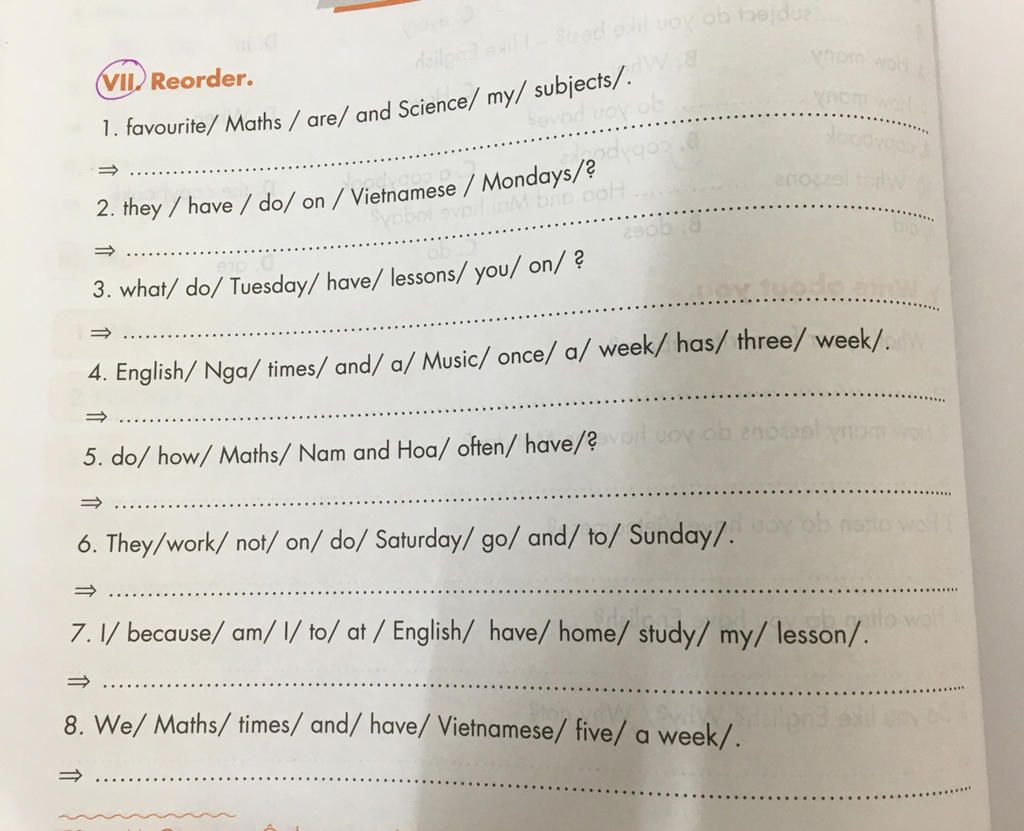 VII. Reorder.
1. favourite/ Maths / are/ and Science/ my/ subjects/.
⇒
2. they / have / do/ on / Vietnamese / Mondays/?
⇒
3. what/ do/ Tuesday/ have/ lessons/ you/ on/ ?
⇒
4. English/ Nga/ times/ and/ a/ Music/ once/ a/ week/ has/ three/ week/.
⇒
5. do/ how/ Maths/ Nam and Hoa/ often/ have/?
⇒
6. They/work/ not/ on/ do/ Saturday/ go/ and/ to/ Sunday/.
⇒
7. I/ because/ am/ I/ to/ at / English/ have/ home/ study/ my/ lesson/.
⇒
8. We/ Maths/ times/ and/ have/ Vietnamese/ five/ a week/.
⇒